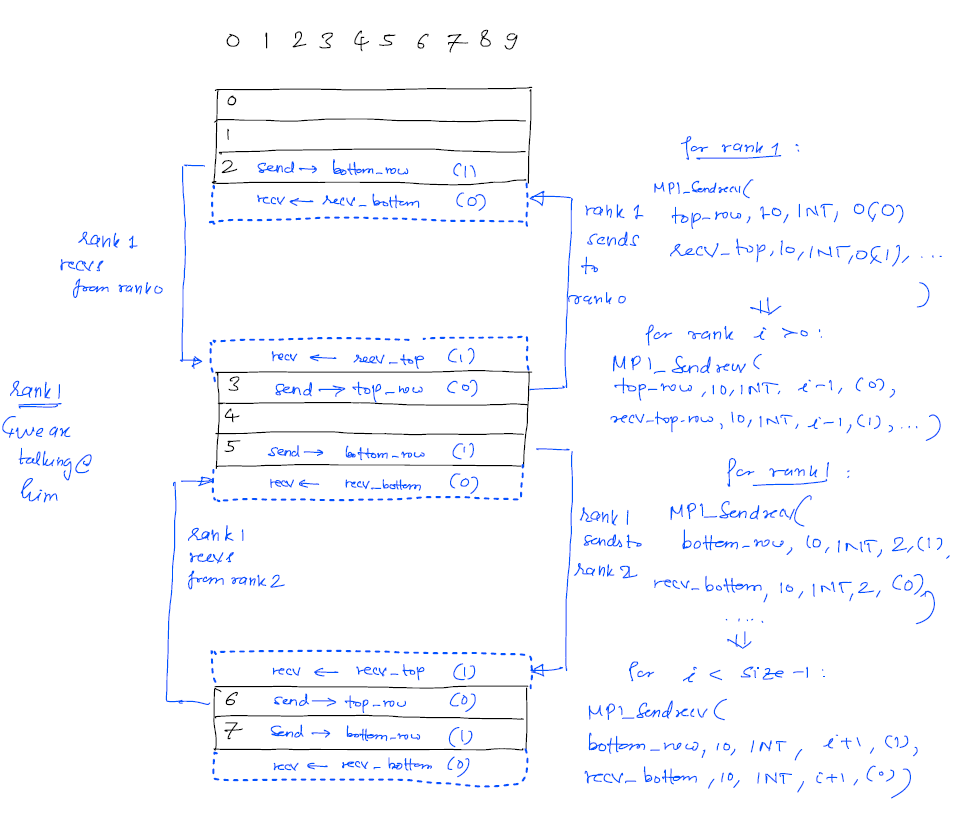 0 1 2 3 4 5 6 7 8 9
0
1
2 send → bottom_row (1)
recv ← recv_bottom (0)
rank 1
recvs
from rank 0
rank 1
sends
to
rank 0
recv ← recv_top (1)
3 send → top_row (0)
4
5 send → bottom_row (1)
recv ← recv_bottom (0)
rank 1
talking @
him
rank 1
recvs
from rank 2
rank 1
sends to
rank 2
recv ← recv_top (1)
6 send → top_row (0)
7 send → bottom_row (1)
recv ← recv_bottom (0)
for rank 1 :
MPI_Sendrecv(
top_row, 10, INT, 0, (0)
recv_top, 10, INT, 0, (1), ...
)
⇓
for rank i >0 :
MPI_Sendrecv(
top_row, 10, INT, i-1, (0),
recv_top_row, 10, INT, i-1, (1), ... )
for rank 1 :
MPI_Sendrecv(
bottom_row, 10, INT, 2, (1),
recv_bottom, 10, INT, 2, (0), )
.....
⇓
for i < size -1 :
MPI_Sendrecv(
bottom_row, 10, INT, i+1, (1),
recv_bottom, 10, INT, i+1, (0))